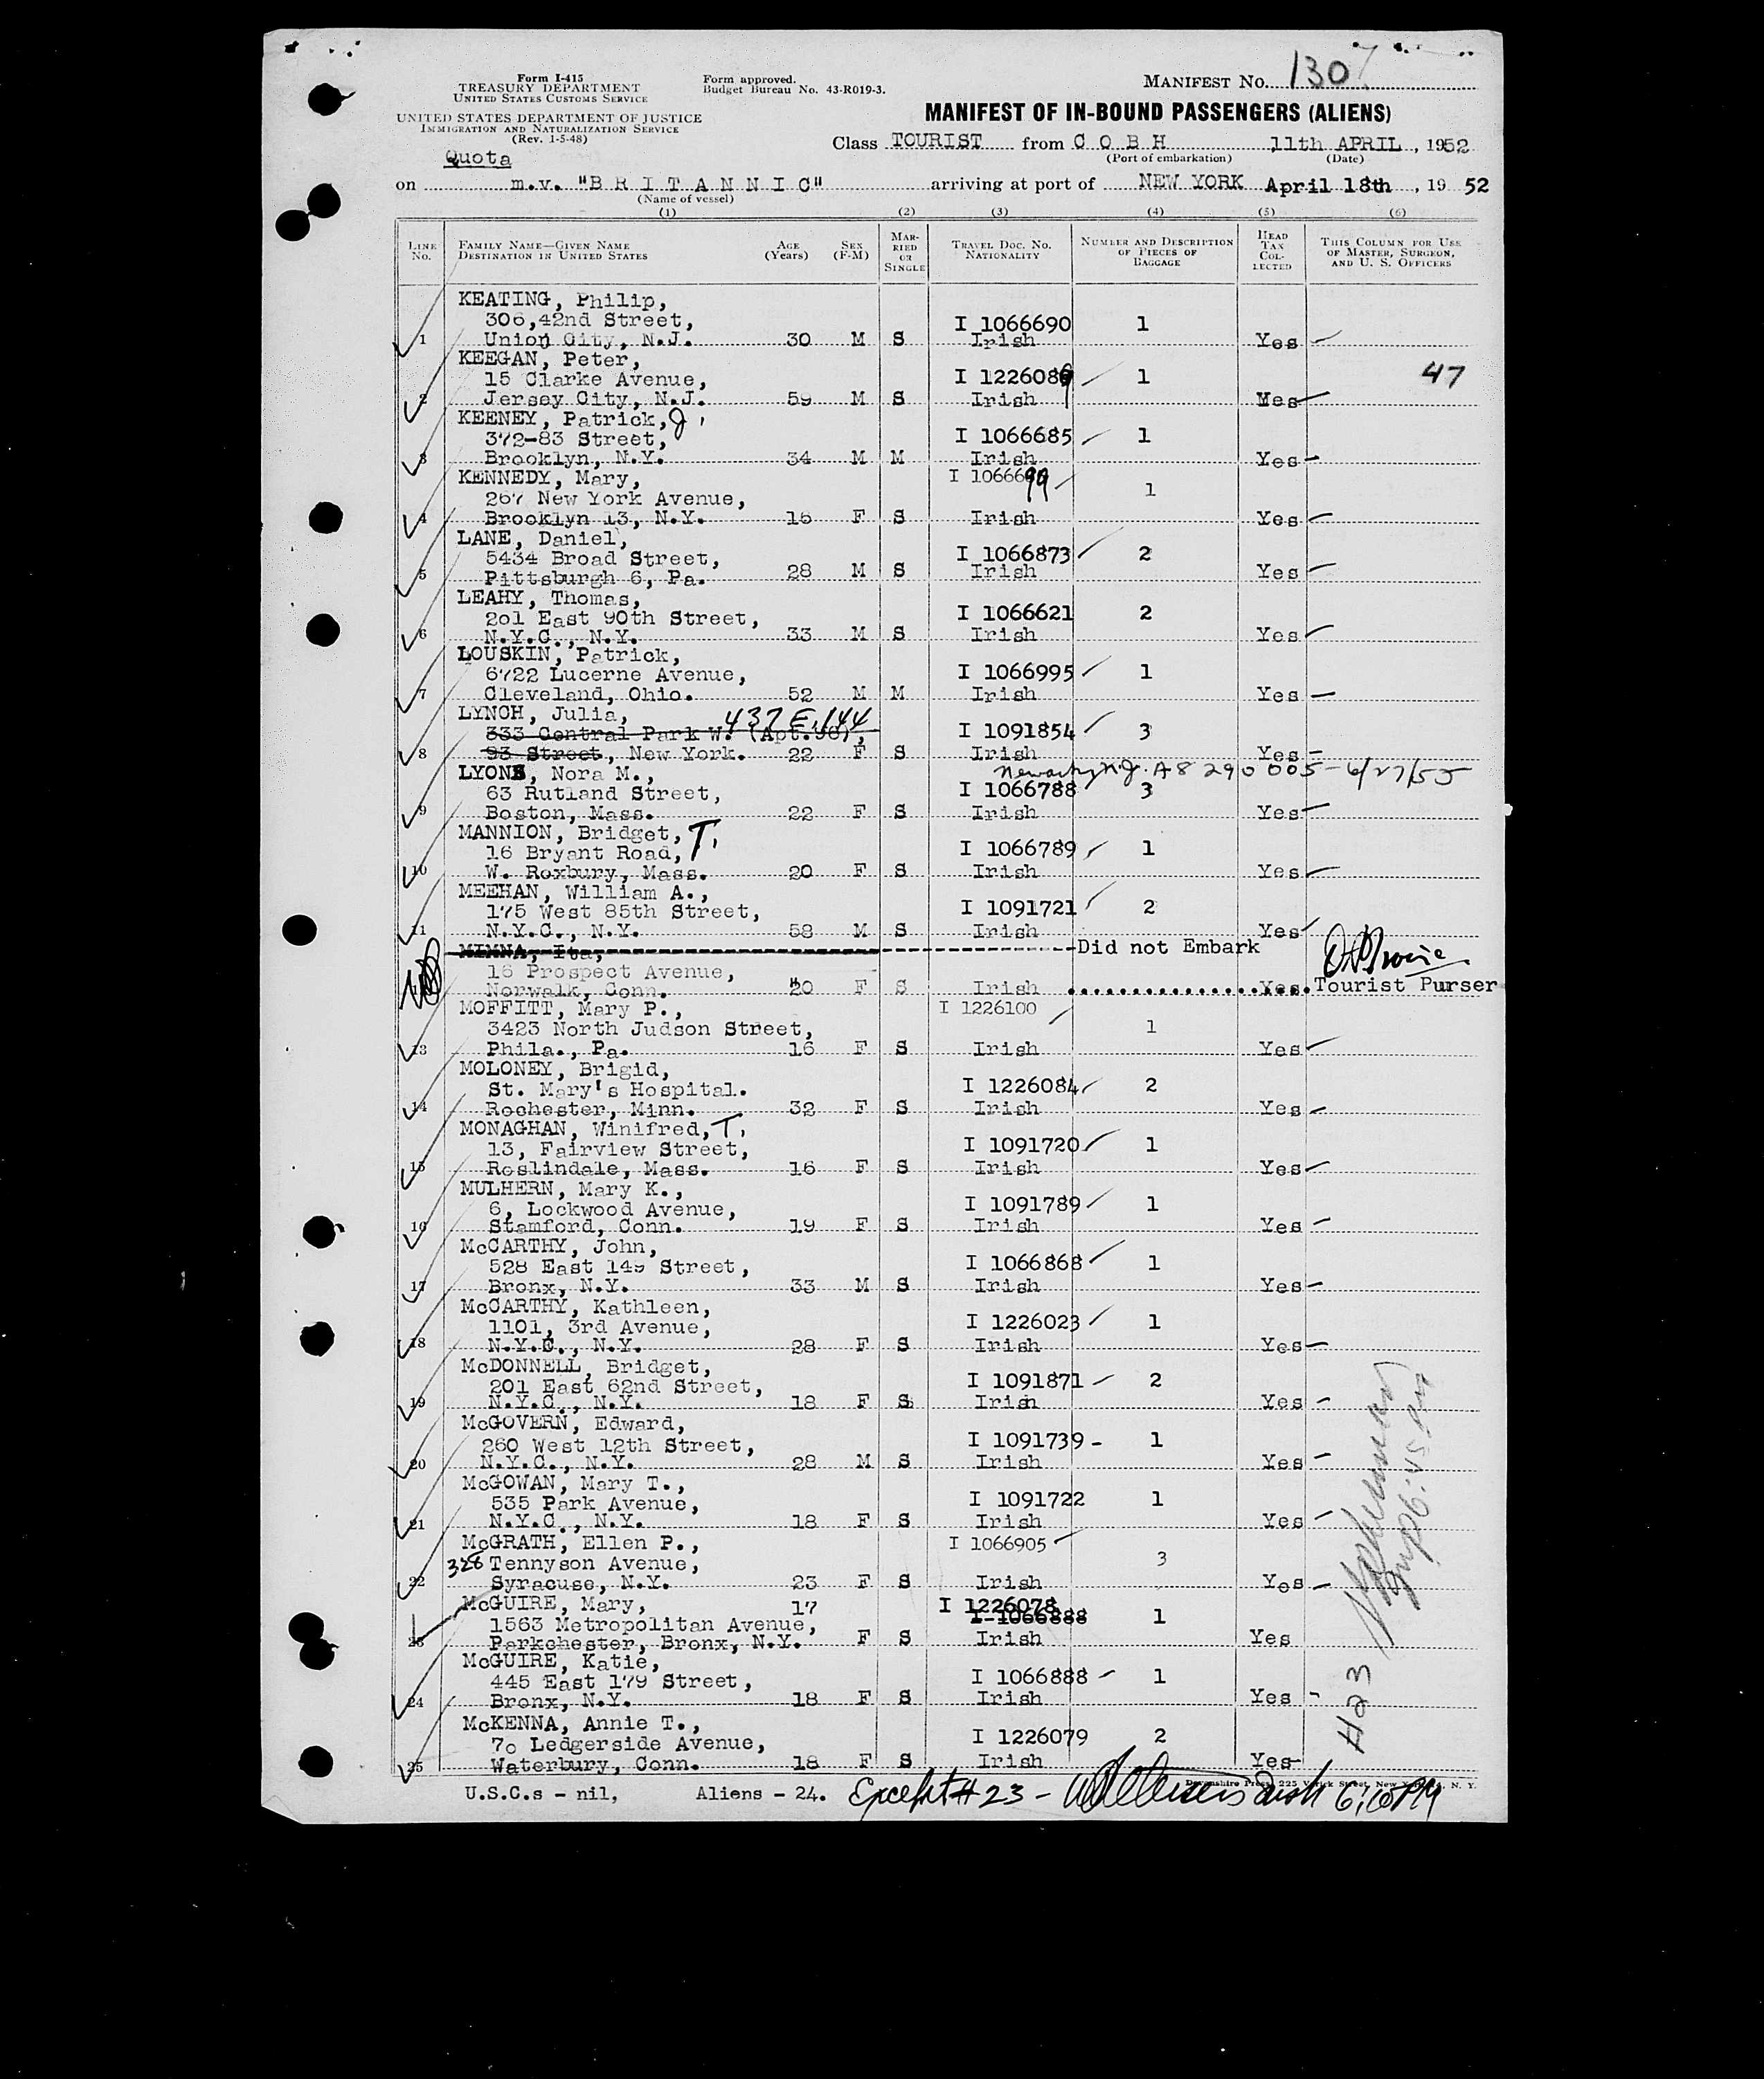 Form I-415
TREASURY DEPARTMENT
UNITED STATES CUSTOMS SERVICE
UNITED STATES DEPARTMENT OF JUSTICE
IMMIGRATION AND NATURALIZATION SERVICE
(Rev. 1-5-48)
Quota
Form approved.
Budget Bureau No. 43-R019-3.
MANIFEST No. 130
MANIFEST OF IN-BOUND PASSENGERS (ALIENS)
Class TOURIST from C O B H 11th APRIL, 1952
(Port of embarkation) (Date)
on m.v. "B R I T A N N I C" arriving at port of NEW YORK April 18th, 19 52
(Name of vessel)
(1) (2) (3) (4) (5) (6)
LINE No. FAMILY NAME—GIVEN NAME DESTINATION IN UNITED STATES AGE (Years) SEX (F-M) MARRIED OR SINGLE TRAVEL DOC. NO. NATIONALITY NUMBER AND DESCRIPTION OF PIECES OF BAGGAGE HEAD TAX COLLECTED THIS COLUMN FOR USE OF MASTER, SURGEON, AND U. S. OFFICERS
KEATING, Philip,
306,42nd Street, I 1066690 1
1 Union City, N.J. 30 M S Irish Yes
KEEGAN, Peter, 47
15 Clarke Avenue, I 1226089 1
2 Jersey City, N.J. 59 M S Irish Yes
KEENEY, Patrick, J.
372-83 Street, I 1066685 1
3 Brooklyn, N.Y. 34 M M Irish Yes
KENNEDY, Mary, I 1066699
267 New York Avenue, 1
4 Brooklyn 13, N.Y. 16 F S Irish Yes
LANE, Daniel,
5434 Broad Street, I 1066873 2
5 Pittsburgh 6, Pa. 28 M S Irish Yes
LEAHY, Thomas,
2o1 East 90th Street, I 1066621 2
6 N.Y.C., N.Y. 33 M S Irish Yes
LOUSKIN, Patrick,
6722 Lucerne Avenue, I 1066995 1
7 Cleveland, Ohio. 52 M M Irish Yes
LYNCH, Julia, 437 E. 144
333 Central Park W. (Apt.96), I 1091854 3
8 93 Street, New York. 22 F S Irish Yes
N.J. A8 290 005 - 6/27/55
LYONS, Nora M.,
63 Rutland Street, I 1066788 3
9 Boston, Mass. 22 F S Irish Yes
MANNION, Bridget, T.
16 Bryant Road, I 1066789 1
10 W. Roxbury, Mass. 20 F S Irish Yes
MEEHAN, William A.,
175 West 85th Street, I 1091721 2
11 N.Y.C., N.Y. 58 M S Irish Yes
MIMNA, Ita, Did not Embark
16 Prospect Avenue,
Norwalk, Conn. 20 F S Irish Yes Tourist Purser
MOFFITT, Mary P., I 1226100
3423 North Judson Street, 1
13 Phila., Pa. 16 F S Irish Yes
MOLONEY, Brigid,
St. Mary's Hospital. I 1226084 2
14 Rochester, Minn. 32 F S Irish Yes
MONAGHAN, Winifred, T.
13, Fairview Street, I 1091720 1
15 Roslindale, Mass. 16 F S Irish Yes
MULHERN, Mary K.,
6, Lockwood Avenue, I 1091789 1
16 Stamford, Conn. 19 F S Irish Yes
McCARTHY, John,
528 East 149 Street, I 1066868 1
17 Bronx, N.Y. 33 M S Irish Yes
McCARTHY, Kathleen,
1101, 3rd Avenue, I 1226023 1
18 N.Y.C., N.Y. 28 F S Irish Yes
McDONNELL, Bridget,
201 East 62nd Street, I 1091871 2
19 N.Y.C., N.Y. 18 F S Irish Yes
McGOVERN, Edward,
260 West 12th Street, I 1091739 1
20 N.Y.C., N.Y. 28 M S Irish Yes
McGOWAN, Mary T.,
535 Park Avenue, I 1091722 1
21 N.Y.C., N.Y. 18 F S Irish Yes
McGRATH, Ellen P., I 1066905
328 Tennyson Avenue, 3
22 Syracuse, N.Y. 23 F S Irish Yes
McGUIRE, Mary, 17 I 1226078
1563 Metropolitan Avenue, I 1066888 1
23 Parkchester, Bronx, N.Y. F S Irish Yes
McGUIRE, Katie,
445 East 179 Street, I 1066888 1
24 Bronx, N.Y. 18 F S Irish Yes
#23
McKENNA, Annie T.,
7o Ledgerside Avenue, I 1226079 2
25 Waterbury, Conn. 18 F S Irish Yes
Devonshire Press, 225 Varick Street, New York, N. Y.
U.S.C.s - nil, Aliens - 24. Except # 23 -